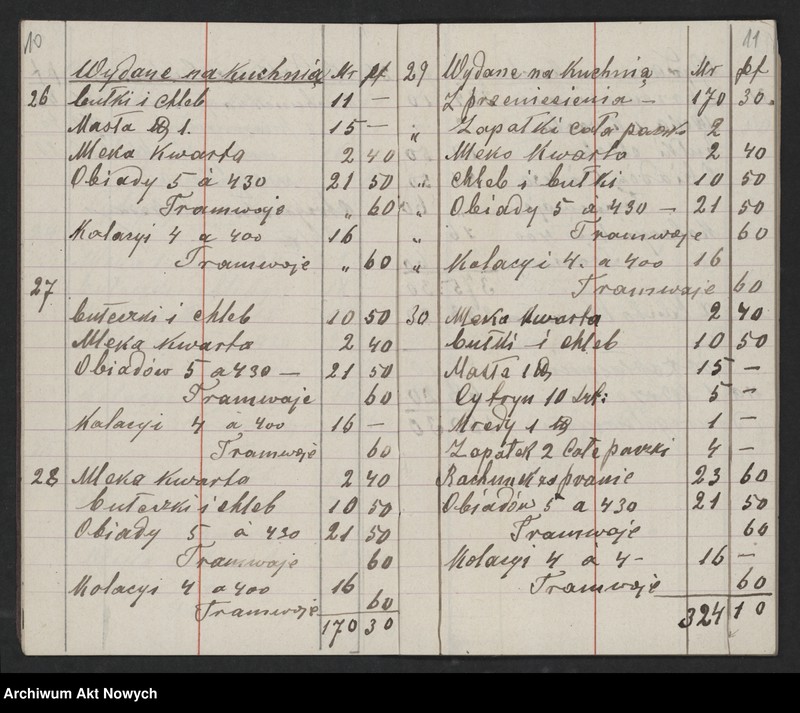 10
Wydane na Kuchnią Mr pf
26 bułki i chleb 11 —
Masła 1. 15 —
Mleka Kwarta 2 40
Obiady 5 à 430 21 50
Tramwaje „ 60
Kolacyi 4 a 400 16
Tramwoje „ 60
27
bułeczki i chleb 10 50
Mleka Kwarta 2 40
Obiadów 5 a 430 — 21 50
Tramwaje 60
Kolacyi 4 a 400 16 —
Tramwoje 60
28 Mleka Kwarta 2 40
bułeczki i chleb 10 50
Obiady 5 à 430 21 50
Tramwaje 60
Kolacyi 4 a 400 16
Tramwoje 60
170 30
11
29 Wydane na Kuchnią Mr pf
Z przeniesienia — 170 30
„ Zapałki cała 2
Mleko Kwarta 2 40
„ chleb i bułki 10 50
„ Obiady 5 a 430 — 21 50
„ Tramwoje 60
„ Kolacyi 4. a 400 16
Tramwaje 60
30 Mleka Kwarta 2 40
bułki i chleb 10 50
Masła 1 15 —
Cytryn 10 5 —
Kredy 1 1 —
Zapałek 2 całe paczki 4 —
Rachunek za pranie 23 60
Obiadów 5 a 430 21 50
Tramwoje 60
Kolacyi 4 a 4- 16 —
Tramwoje 60
324 10
Archiwum Akt Nowych